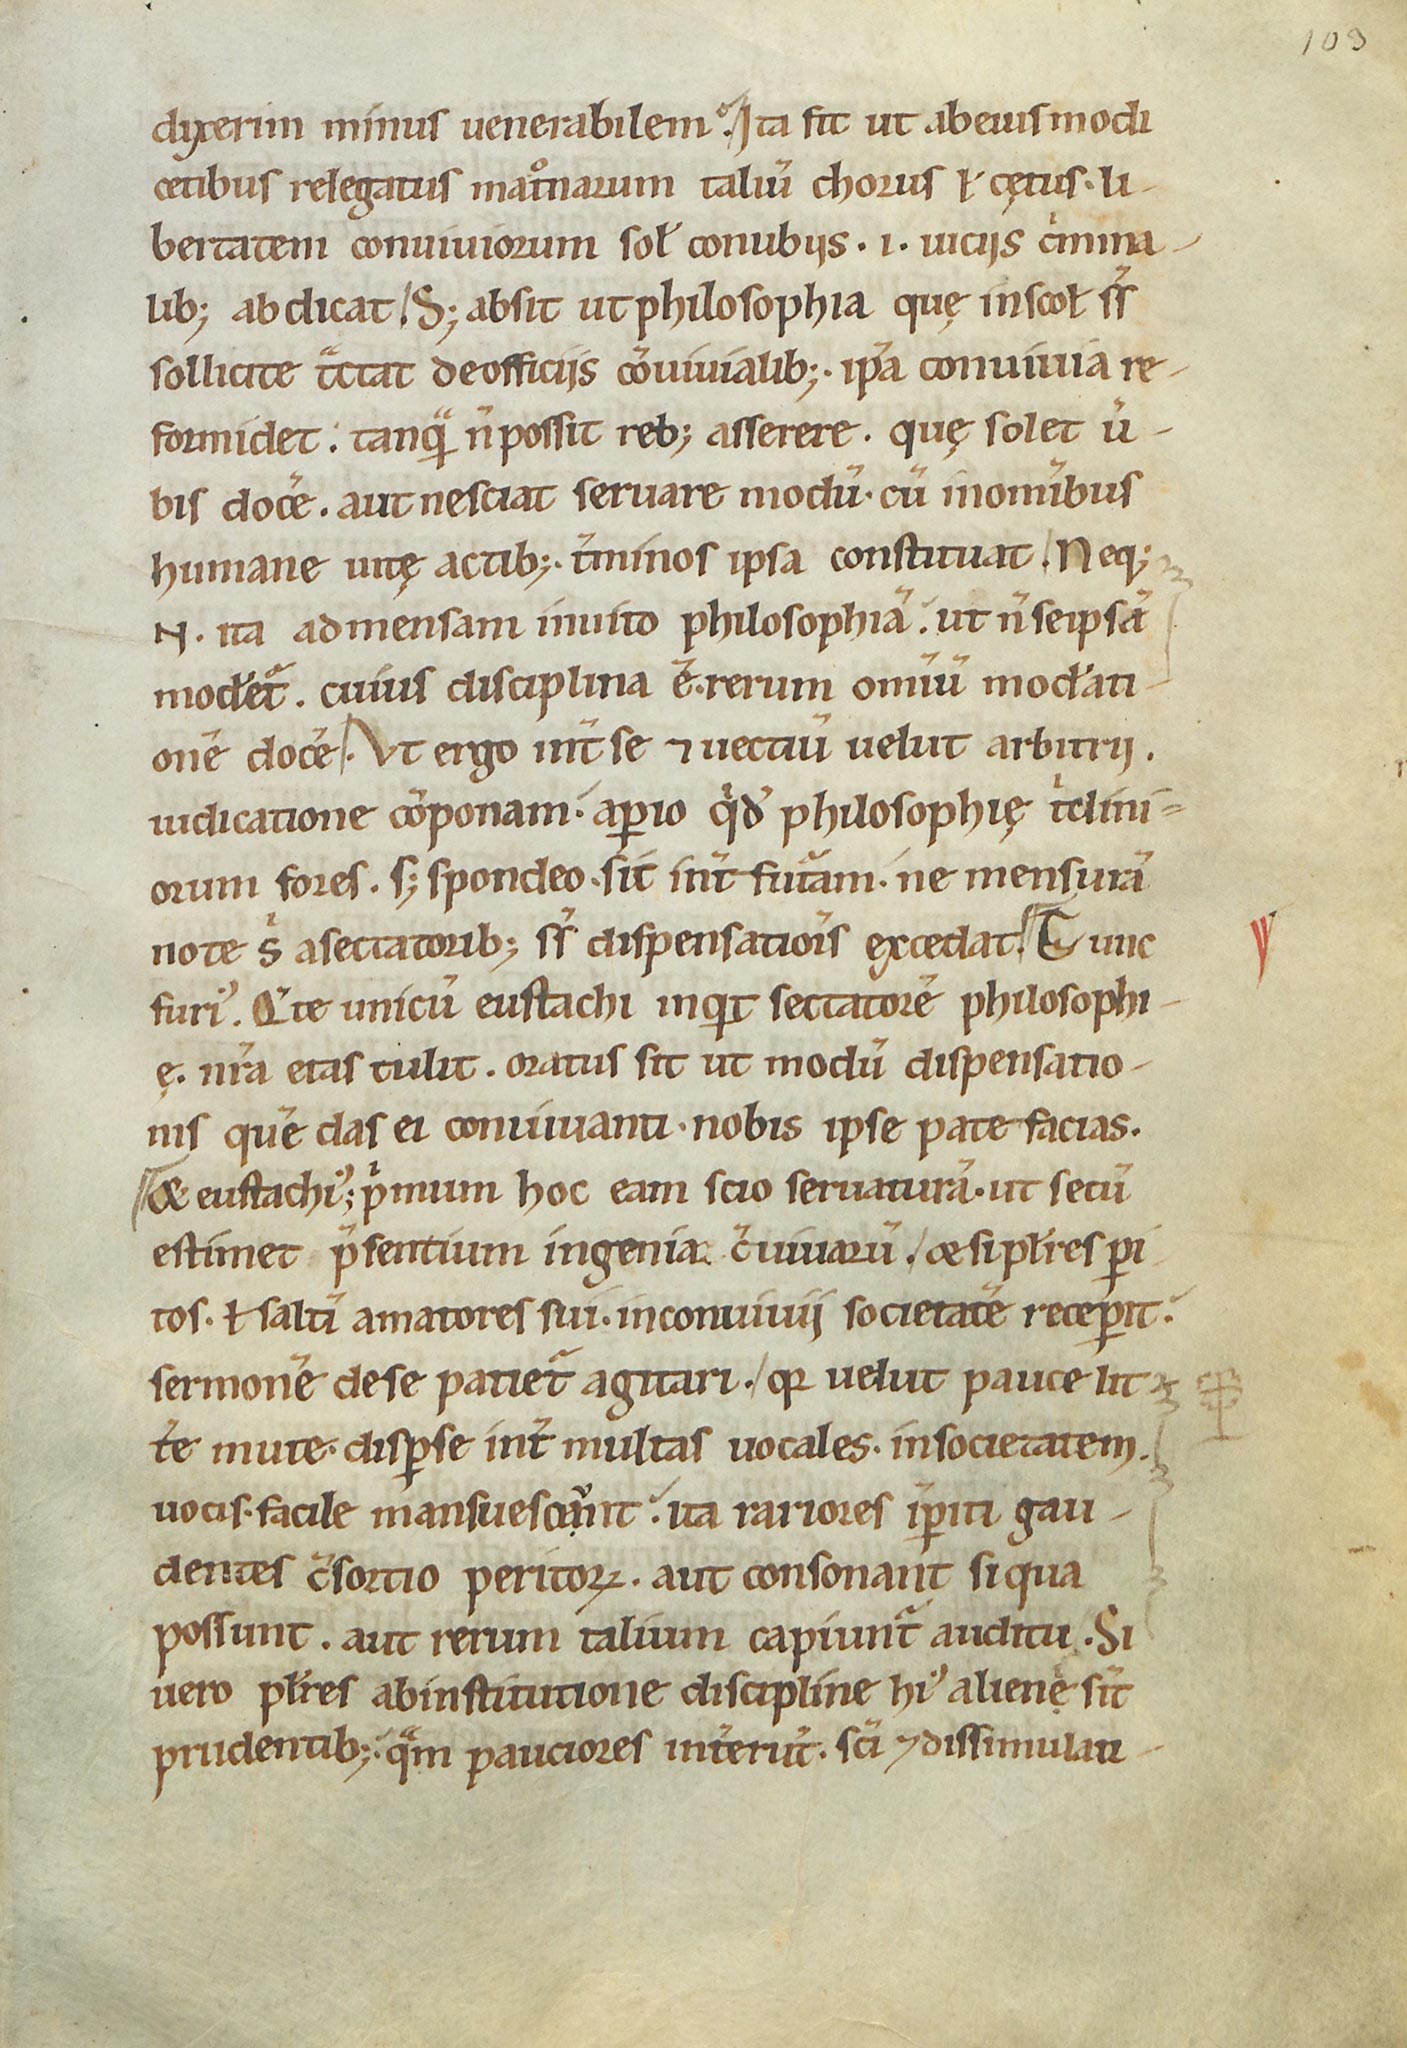 103
dixerim minus uenerabilem. Ita fit ut abeiusmodi
cetibus relegatus mat̊narum taliū chorus ł cętus. li-
bertatem conuiuiorum sol̄ conubijs .i. uicijs c̄mina-
lib; abdicat. S; absit ut philosophia quę inscol̄ sr̄
sollicite tͣctat deofficijs cōuiuialib;. ip̄a conuiuia re-
formidet. tanqͣ n̄possit reb; asserere. quę solet ū-
bis docē. aut nesciat seruare modū. cū inomībus
humane uitę actib;. t̄minos ipsa constituat. Neq;
N. ita admensam inuito philosophiā. ut n̄ seipsā
mod̄etͣ. cuius disciplina ē. rerum omīū mod̄ati-
onē docē. Vt ergo int̄ se ⁊ uectiū uelut arbitrij.
iudicatione cōponam. aꝑio qͥd̄ philosophię tͥclini=
orum fores. s; spondeo. sit int̄ futͣam. ne mensurā
note s̄ asectatorib; sr̄ dispensatiōis excedat. Tunc
furiꝰ. Qͥ te unicū eustachi inqͥt sectatorē philosophi-
ę. nr̄a etas tulit. oratus sit ut modū dispensatio-
nis quē das ei conuiuanti. nobis ipse pate facias.
& eustachiꝰ; pͥmum hoc eam scio seruaturā. ut secū
estimet p̄sentium ingenia c̄uiuarū. & si pl̄res ꝑi
tos. ł saltī amatores sui. inconuiuij societatē receꝑit.
sermonē dese patietͣ agitari. qꝛ uelut pauce lit
t̄e mute. disꝑse int̄ multas uocales. insocietatem
uocis. facile mansuescunt. ita rariores iꝑiti gau-
dentes c̄sortio peritoꝝ. aut consonant siqua
possunt. aut rerum talium capiuntͣ auditu. Si
uero pl̄res abinstitutione discipline hiꝰ alienę sīt
prudentib;. qͣm pauciores int̄erūt. scī ⁊ dissimulau-